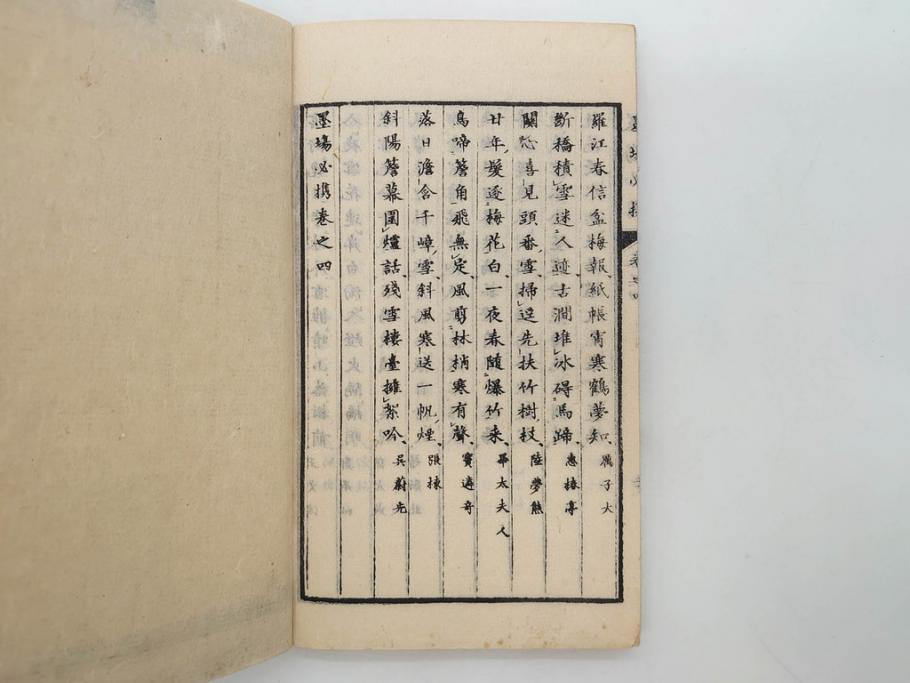 羅江春信盆梅報紙帳宵寒鶴夢知 子大
断橋積雪迷人迹古澗堆冰碍馬蹄 惠椿亭
關心喜見頭番雪掃逕先扶竹樹枝 陸夢熊
廿年髮逐梅花白一夜春隨爆竹来 畢太夫人
鳥啼簷角飛無定風剪林梢寒有聲 竇遴奇
落日澹含千嶂雪斜風寒送一帆煙 張棟
斜陽簷幕圍爐話殘雪樓臺擁絮吟 吳蔚光
墨場必携卷之四